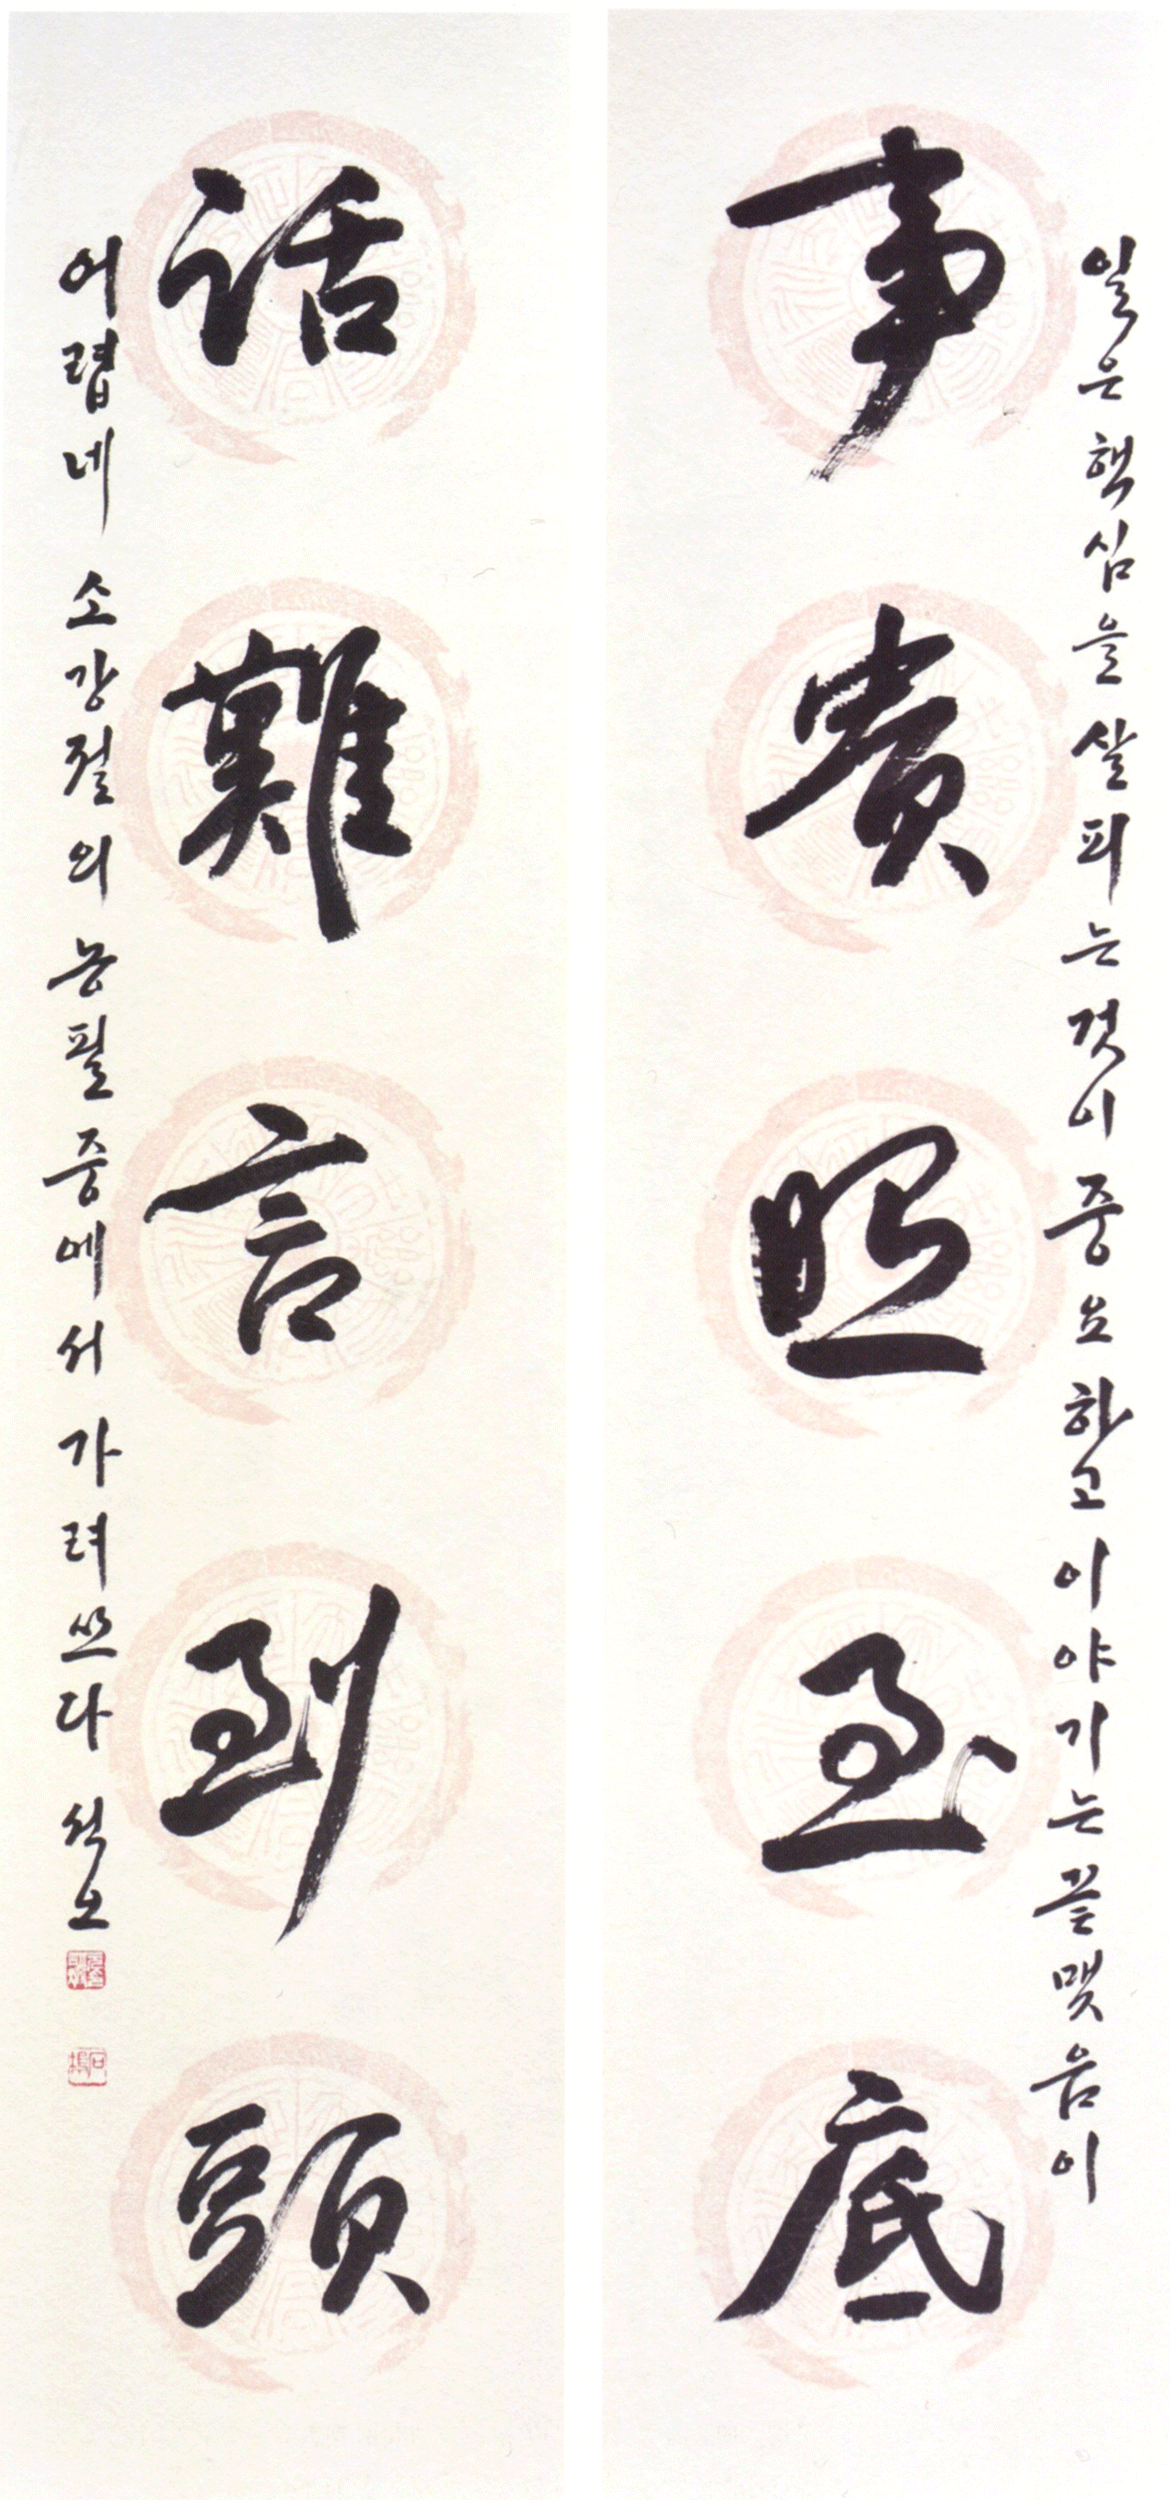 일은 핵심을 살피는 것이 중요하고 이야기는 끝맺음이
事貴照至底
話難言到頭
어렵네 소강절의 농필 중에서 가려쓰다 석오